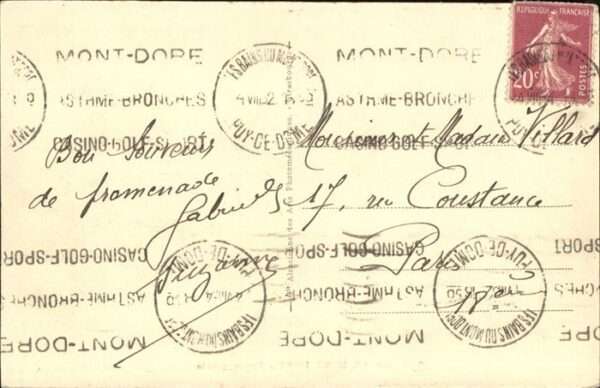 RÉPUBLIQUE FRANÇAISE
20c
POSTES
MONT-DORE
MONT-DORE
LES BAINS DU MONT-DORE
PUY-DE-DOME
ASTHME-BRONCHES
ASTHME-BRONCHES
CASINO-GOLF-SPORT
CASINO-GOLF-SPORT
Bon Souvenir
de promenade
Gabriel
Suzanne
Monsieur et Madame Villard
17, rue Constance
Paris
18e
CASINO-GOLF-SPORT
CASINO-GOLF-SPORT
ASTHME-BRONCHES
ASTHME-BRONCHES
MONT-DORE
MONT-DORE
PUY-DE-DOME
LES BAINS DU MONT-DORE
PUY-DE-DOME
LES BAINS DU MONT-DORE